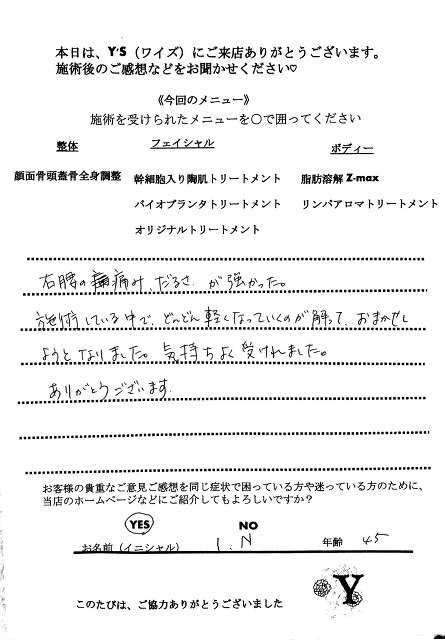 本日は、Y'S（ワイズ）にご来店ありがとうございます。
施術後のご感想などをお聞かせください♡
《今回のメニュー》
施術を受けられたメニューを〇で囲ってください
整体 フェイシャル ボディー
顔面骨頭蓋骨全身調整 幹細胞入り陶肌トリートメント 脂肪溶解 Z-max
バイオプランタトリートメント リンパアロマトリートメント
オリジナルトリートメント
右腰の痛み、だるさ が強かった。
施術している中で、どんどん軽くなっていくのが解って、おまかせし
ようとなりました。気持ちよく受けれました。
ありがとうございます。
お客様の貴重なご意見ご感想を同じ症状で困っている方や迷っている方のために、
当店のホームページなどにご紹介してもよろしいですか？
YES NO
お名前（イニシャル） I.N 年齢 45
Y
このたびは、ご協力ありがとうございました